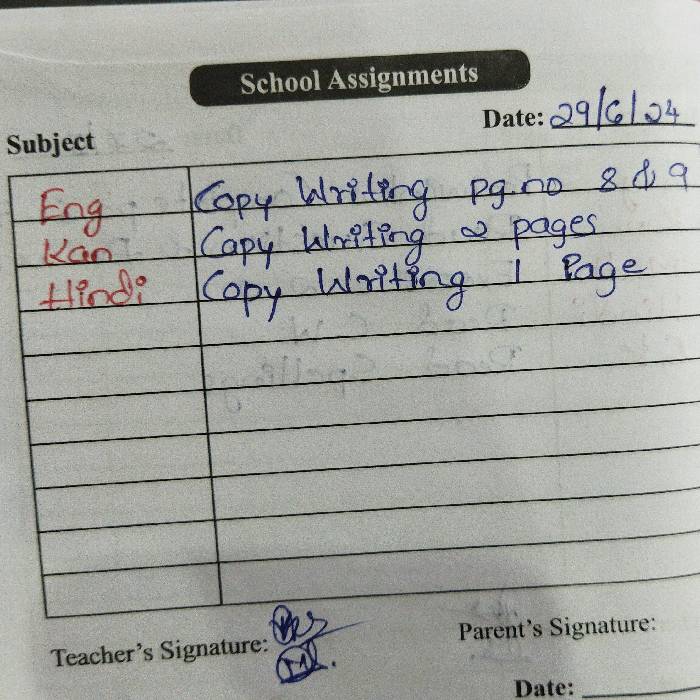 School Assignments
Date: 29/6/24
Subject
Eng Copy Writing pg.no 8 & 9
Kan Copy Writing 2 pages
Hindi Copy Writing 1 Page
Teacher's Signature:
Parent's Signature:
Date: